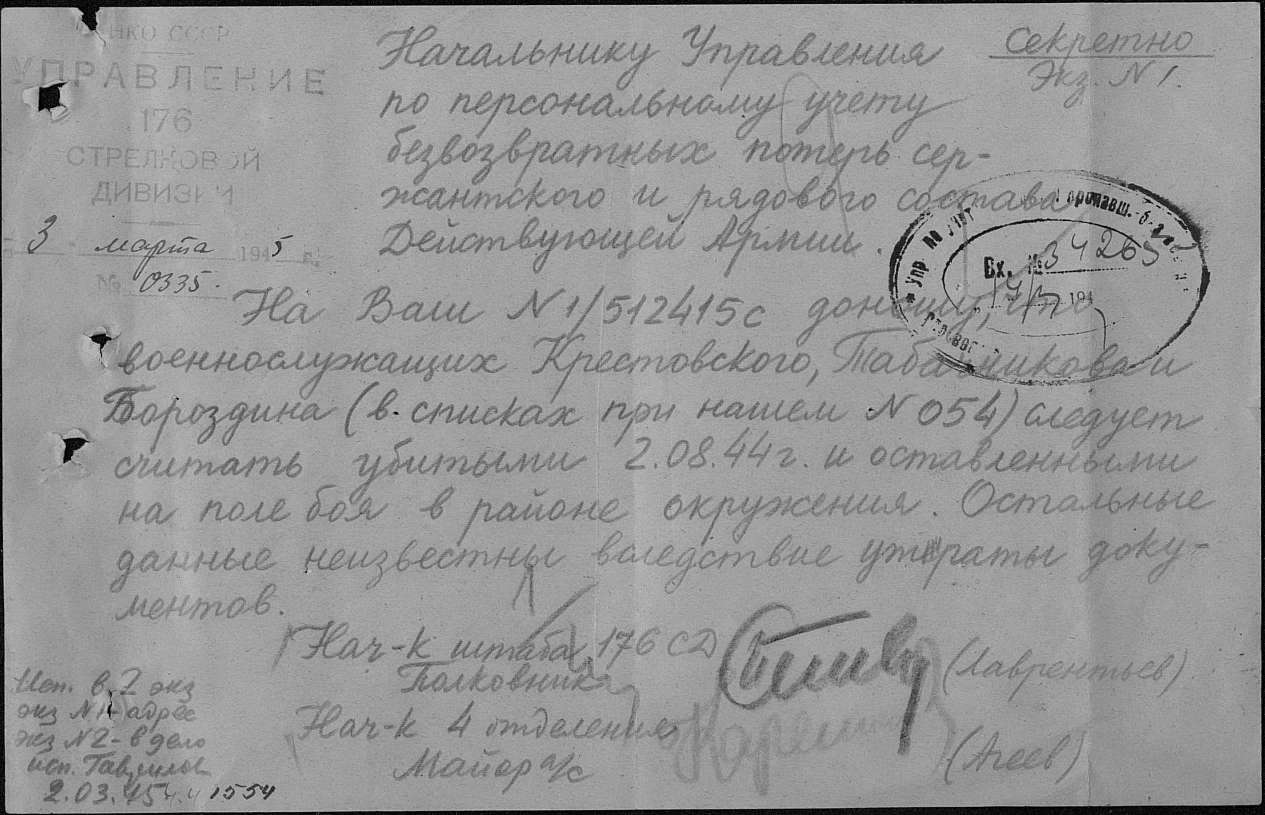 НКО СССР
УПРАВЛЕНИЕ
176
СТРЕЛКОВОЙ
ДИВИЗИИ
3 марта 1945 г.
№ 0335.
Секретно
Экз. N 1.
Начальнику Управления
по персональному учету
безвозвратных потерь сер-
жантского и рядового состава
Действующей Армии.
Упр. по
Вх. № 34265
194
На Ваш N 1/512415с доношу, что
военнослужащих Крестовского, Табачникова и
Бороздина (в списках при нашем N 054) следует
считать убитыми 2.08.44 г. и оставленными
на поле боя в районе окружения. Остальные
данные неизвестны вследствие утраты доку-
ментов.
Нач-к штаба 176 СД
Полковник (Лаврентьев)
Нач-к 4 отделения
Майор а/с (Агеев)
Исп. в 2 экз
экз N 1 - адрес
экз N 2 - в дело
исп.
2.03.45 г. 1554